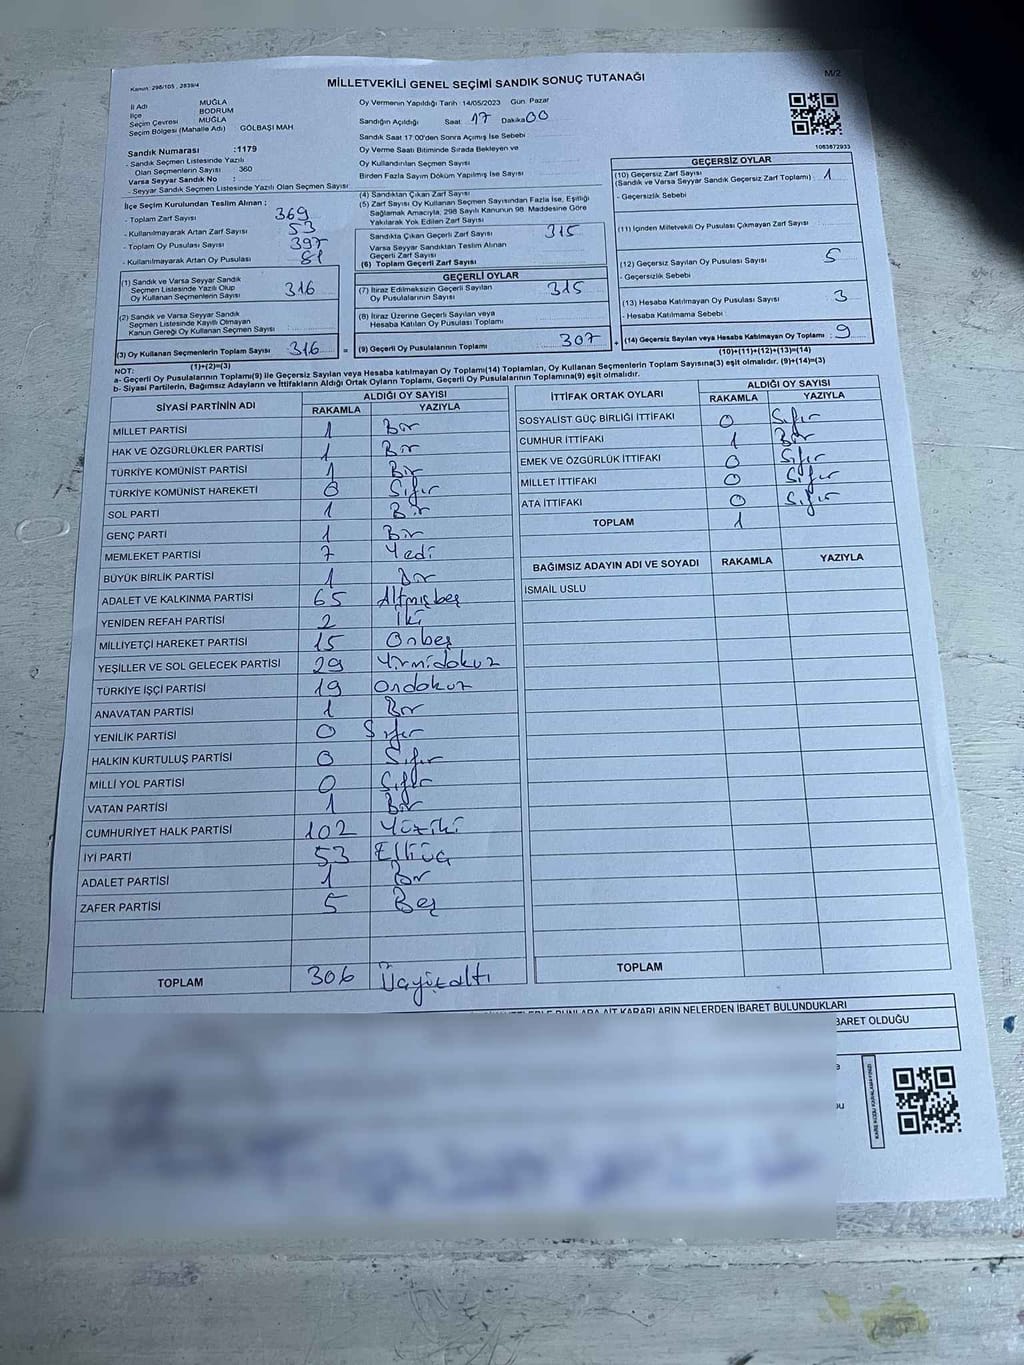 M/2
Kanun : 298/105 , 2839/4
MİLLETVEKİLİ GENEL SEÇİMİ SANDIK SONUÇ TUTANAĞI
İl Adı MUĞLA
İlçe BODRUM
Seçim Çevresi MUĞLA
Seçim Bölgesi (Mahalle Adı) GÖLBAŞI MAH
Sandık Numarası :1179
- Sandık Seçmen Listesinde Yazılı
Olan Seçmenlerin Sayısı 360
Varsa Seyyar Sandık No :
- Seyyar Sandık Seçmen Listesinde Yazılı Olan Seçmen Sayısı
Oy Vermenin Yapıldığı Tarih 14/05/2023 Gün Pazar
Sandığın Açıldığı Saat 17 Dakika 00
Sandık Saat 17:00'den Sonra Açımış İse Sebebi
Oy Verme Saati Bitiminde Sırada Bekleyen ve
Oy Kullandırılan Seçmen Sayısı
Birden Fazla Sayım Döküm Yapılmış İse Sayısı
1063872933
İlçe Seçim Kurulundan Teslim Alınan ;
- Toplam Zarf Sayısı 369
- Kullanılmayarak Artan Zarf Sayısı 53
- Toplam Oy Pusulası Sayısı 397
- Kullanılmayarak Artan Oy Pusulası 81
(1) Sandık ve Varsa Seyyar Sandık
Seçmen Listesinde Yazılı Olup
Oy Kullanan Seçmenlerin Sayısı 316
(2) Sandık ve Varsa Seyyar Sandık
Seçmen Listesinde Kayıtlı Olmayan
Kanun Gereği Oy Kullanan Seçmen Sayısı
(3) Oy Kullanan Seçmenlerin Toplam Sayısı 316 =
(1)+(2)=(3)
(4) Sandıktan Çıkan Zarf Sayısı
(5) Zarf Sayısı Oy Kullanan Seçmen Sayısından Fazla İse, Eşitliği
Sağlamak Amacıyla, 298 Sayılı Kanunun 98. Maddesine Göre
Yakılarak Yok Edilen Zarf Sayısı
Sandıkta Çıkan Geçerli Zarf Sayısı 315
Varsa Seyyar Sandıktan Teslim Alınan
Geçerli Zarf Sayısı
(6) Toplam Geçerli Zarf Sayısı
GEÇERLİ OYLAR
(7) İtiraz Edilmeksizin Geçerli Sayılan
Oy Pusulalarının Sayısı 315
(8) İtiraz Üzerine Geçerli Sayılan veya
Hesaba Katılan Oy Pusulası Toplamı
(9) Geçerli Oy Pusulalarının Toplamı 307 +
GEÇERSİZ OYLAR
(10) Geçersiz Zarf Sayısı
(Sandık ve Varsa Seyyar Sandık Geçersiz Zarf Toplamı) : 1
- Geçersizlik Sebebi
(11) İçinden Milletvekili Oy Pusulası Çıkmayan Zarf Sayısı
(12) Geçersiz Sayılan Oy Pusulası Sayısı 5
- Geçersizlik Sebebi
(13) Hesaba Katılmayan Oy Pusulası Sayısı 3
- Hesaba Katılmama Sebebi
(14) Geçersiz Sayılan veya Hesaba Katılmayan Oy Toplamı : 9
(10)+(11)+(12)+(13)=(14)
NOT:
a- Geçerli Oy Pusulalarının Toplamı(9) ile Geçersiz Sayılan veya Hesaba katılmayan Oy Toplamı(14) Toplamları, Oy Kullanan Seçmenlerin Toplam Sayısına(3) eşit olmalıdır. (9)+(14)=(3)
b- Siyasi Partilerin, Bağımsız Adayların ve İttifakların Aldığı Ortak Oyların Toplamı, Geçerli Oy Pusulalarının Toplamına(9) eşit olmalıdır.
SİYASİ PARTİNİN ADI ALDIĞI OY SAYISI
RAKAMLA YAZIYLA
MİLLET PARTİSİ 1 Bir
HAK VE ÖZGÜRLÜKLER PARTİSİ 1 Bir
TÜRKİYE KOMÜNİST PARTİSİ 1 Bir
TÜRKİYE KOMÜNİST HAREKETİ 0 Sıfır
SOL PARTİ 1 Bir
GENÇ PARTİ 1 Bir
MEMLEKET PARTİSİ 7 Yedi
BÜYÜK BİRLİK PARTİSİ 1 Bir
ADALET VE KALKINMA PARTİSİ 65 Altmışbeş
YENİDEN REFAH PARTİSİ 2 İki
MİLLİYETÇİ HAREKET PARTİSİ 15 Onbeş
YEŞİLLER VE SOL GELECEK PARTİSİ 29 Yirmidokuz
TÜRKİYE İŞÇİ PARTİSİ 19 Ondokuz
ANAVATAN PARTİSİ 1 Bir
YENİLİK PARTİSİ 0 Sıfır
HALKIN KURTULUŞ PARTİSİ 0 Sıfır
MİLLİ YOL PARTİSİ 0 Sıfır
VATAN PARTİSİ 1 Bir
CUMHURİYET HALK PARTİSİ 102 Yüziki
İYİ PARTİ 53 Elliüç
ADALET PARTİSİ 1 Bir
ZAFER PARTİSİ 5 Beş
TOPLAM 306 Üçyüzaltı
İTTİFAK ORTAK OYLARI ALDIĞI OY SAYISI
RAKAMLA YAZIYLA
SOSYALİST GÜÇ BİRLİĞİ İTTİFAKI 0 Sıfır
CUMHUR İTTİFAKI 1 Bir
EMEK VE ÖZGÜRLÜK İTTİFAKI 0 Sıfır
MİLLET İTTİFAKI 0 Sıfır
ATA İTTİFAKI 0 Sıfır
TOPLAM 1
BAĞIMSIZ ADAYIN ADI VE SOYADI RAKAMLA YAZIYLA
İSMAİL USLU
TOPLAM
AİT KARARLARIN NELERDEN İBARET BULUNDUKLARI
BARET OLDUĞU